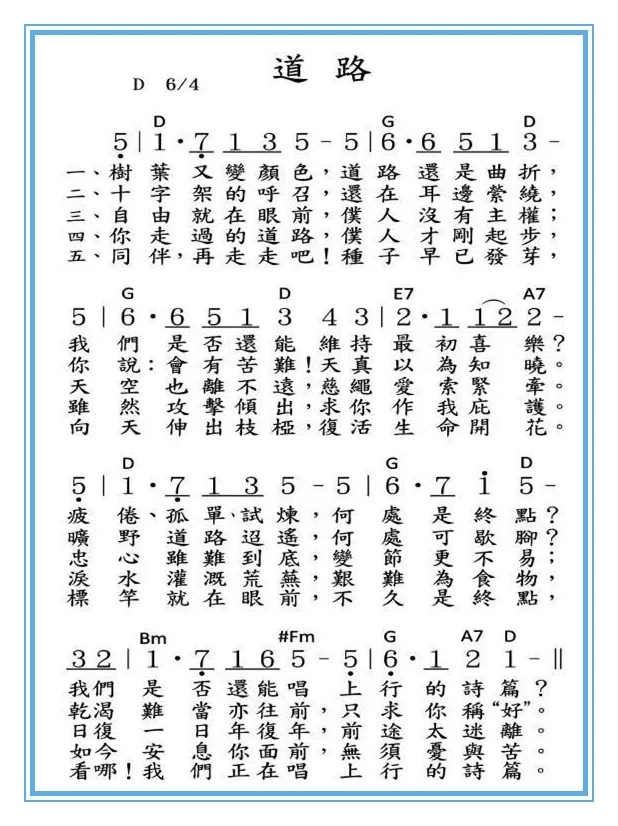 道 路
D 6/4
D G D
5 | 1 · 7 1 3 5 - 5 | 6 · 6 5 1 3 -
一、樹 葉 又 變 顏 色，道 路 還 是 曲 折，
二、十 字 架 的 呼 召，還 在 耳 邊 縈 繞，
三、自 由 就 在 眼 前，僕 人 沒 有 主 權；
四、你 走 過 的 道 路，僕 人 才 剛 起 步，
五、同 伴，再 走 走 吧！種 子 早 已 發 芽，
G D E7 A7
5 | 6 · 6 5 1 3 4 3 | 2 · 1 1 2 2 -
我 們 是 否 還 能 維 持 最 初 喜 樂？
你 說：會 有 苦 難！天 真 以 為 知 曉。
天 空 也 離 不 遠，慈 繩 愛 索 緊 牽。
雖 然 攻 擊 傾 出，求 你 作 我 庇 護。
向 天 伸 出 枝 椏，復 活 生 命 開 花。
D G D
5 | 1 · 7 1 3 5 - 5 | 6 · 7 1 5 -
疲 倦、孤 單、試 煉，何 處 是 終 點？
曠 野 道 路 迢 遙，何 處 可 歇 腳？
忠 心 雖 難 到 底，變 節 更 不 易；
淚 水 灌 溉 荒 蕪，艱 難 為 食 物，
標 竿 就 在 眼 前，不 久 是 終 點，
Bm #Fm G A7 D
3 2 | 1 · 7 1 6 5 - 5 | 6 · 1 2 1 - ‖
我 們 是 否 還 能 唱 上 行 的 詩 篇？
乾 渴 難 當 亦 往 前，只 求 你 稱 “好”。
日 復 一 日 年 復 年，前 途 太 迷 離。
如 今 安 息 你 面 前，無 須 憂 與 苦。
看 哪！我 們 正 在 唱 上 行 的 詩 篇。